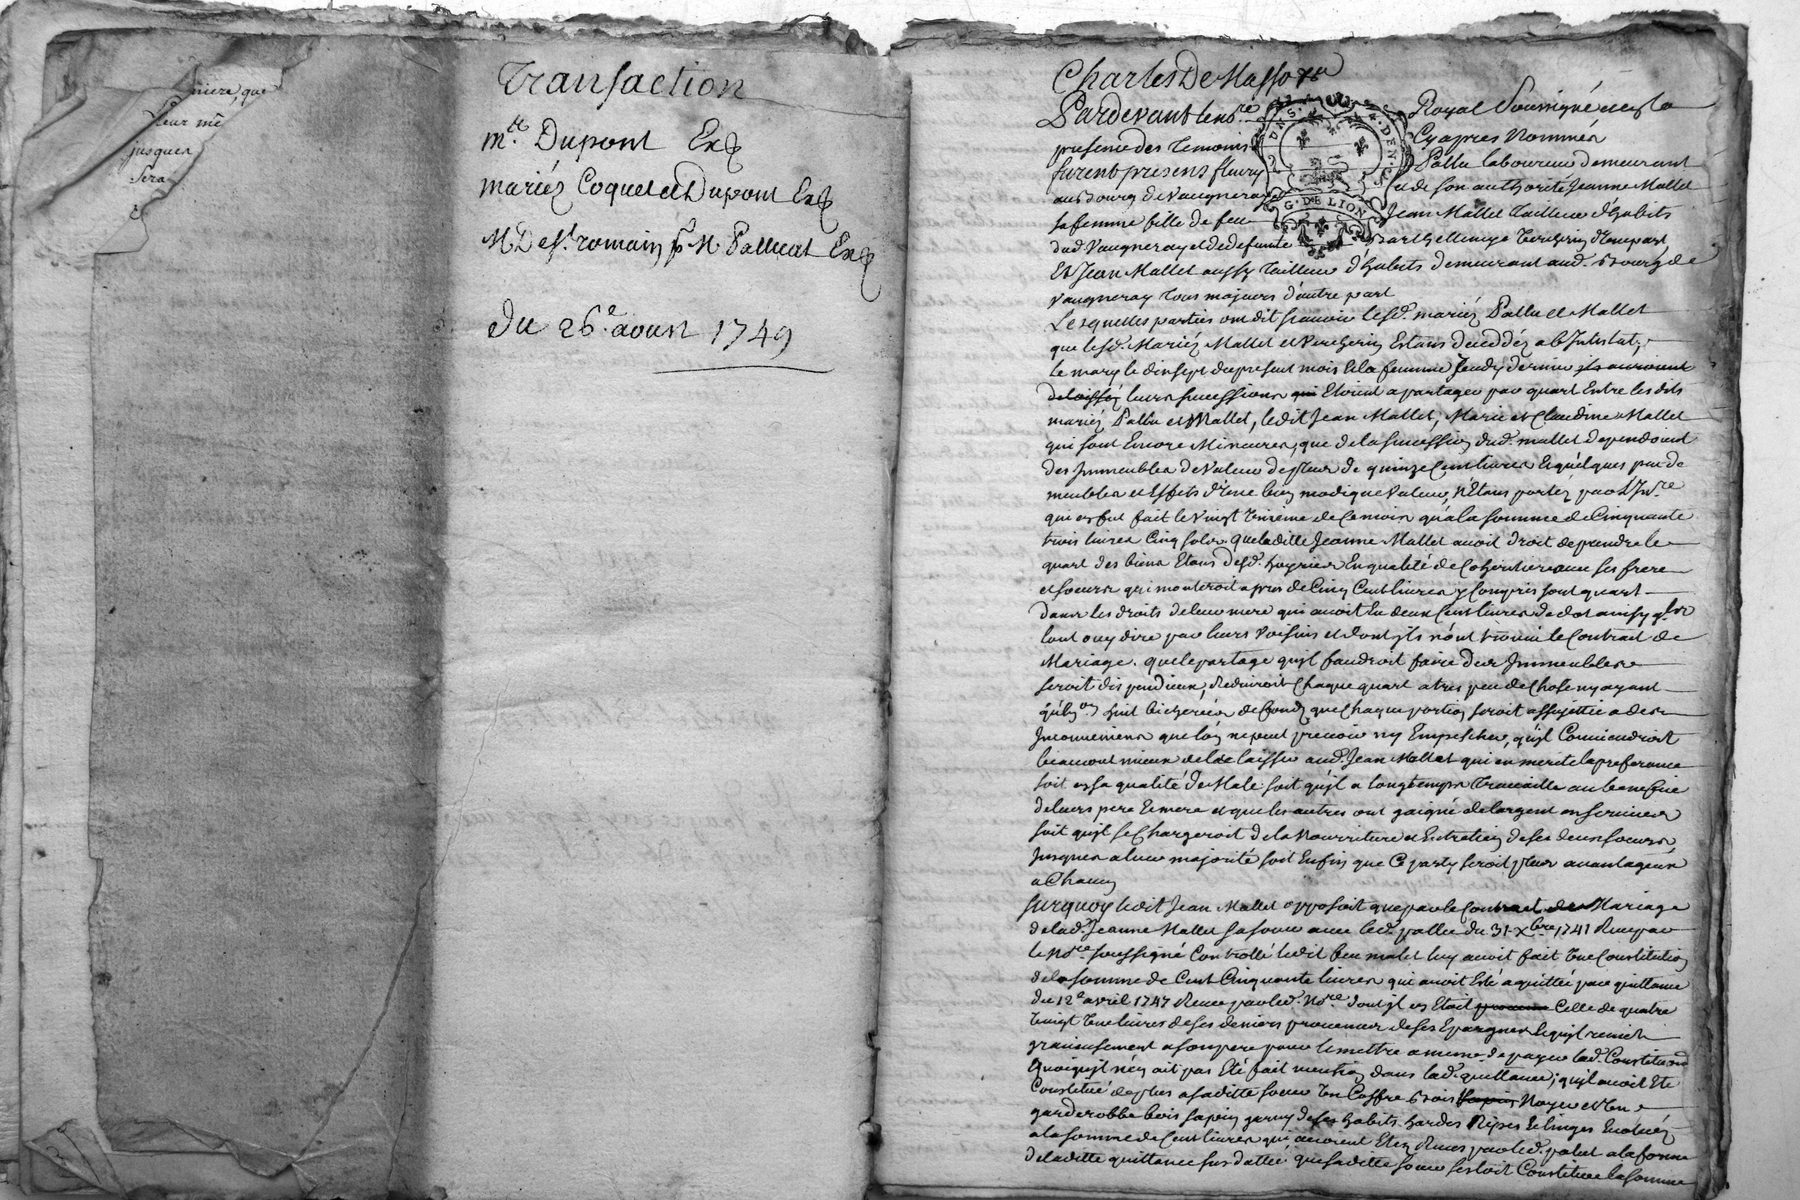 niere, que
leur me
jusques
sera
Transaction
mtt. Dupont Exp
mariéz Coquet et Dupont Exp
Mr De st. romain pr M. Pallucat Exp
du 26e. aoust 1749
Charles De Masso
Pardevant le nore Royal Soussigné et en la
presence des Temoins Cyapres Nommés
furent presens fleury Pallu laboureur demeurant
au Bourg de Vaugneray et de son authorité Jeanne Mallet
sa femme fille de feu Jean Mallet Tailleur d'habits
dud. Vaugneray et de defunte Barthellemye Vercherin d'une part
Et Jean Mallet aussy Tailleur d'habits demeurant aud. Bourg de
Vaugneray tous majeurs d'autre part
Lesquelles parties ont dit scavoir lesd. mariéz Pallu et Mallet
que lesd. Mariéz Mallet et Vercherin Estans deceddéz ab Intestat,
Le mary le dix sept du present mois et la femme Jeudy dernier ils auroient
delaisséz leurs successions qui Etoient a partager par quart Entre les dits
mariéz Pallu et Mallet, ledit Jean Mallet, Marie et Claudine Mallet
qui sont Encore Mineures, que de la succession dud. mallet dependoient
des Immeubles de valeur de plus de quinze Cent livres et quelques peu de
meubles et Effets d'une bien modique valeur, n'Etans portéz par l'Invre
qui en fut fait le vingt troisieme de ce mois qu'a la somme de Cinquante
trois livres Cinq sols. que laditte Jeanne Mallet avoit droit de prendre le
quart des biens Etans desd. hoyries En qualité de Cohéritiere avec ses frere
et soeurs qui monteroit a pres de Cinq Cent livres y Compris son quart
dans les droits de leur mere qui avoit Eu deux Cent livres de dot ainsy qls
l'ont ouy dire par leurs voisins et dont ils n'ont trouvé le Contract de
Mariage. que le partage qu'il faudroit faire des Immeubles
seroit dispendieux, Reduiroit Chaque quart a tres peu de Chose ny ayant
qu'Env.on huit bicherées de fond, que Chaque portion seroit assujettie a des
Inconveniens que l'on ne peut prevoir ny Empescher, qu'il Conviendroit
beaucoup mieux de le laisser aud. Jean Mallet qui en merite la preference
soit en sa qualité de Male soit qu'il a longtemps travaillé au benefice
de leurs pere et mere et que les autres ont gaigné de l'argent en services
soit qu'il se Chargeroit de la Nourriture et Entretien de ses deux soeurs
jusques a leur majorité soit Enfin que Ce party seroit plus avantageux
a Chacun
Surquoy ledit Jean Mallet opposoit que par le Contract de Mariage
de lad. Jeanne Mallet sa soeur avec led. pallu du 31 xbre 1741 Reçu par
le nore soussigné Controllé ledit feu malet luy avoit fait Une Constitution
de la somme de Cent Cinquante livres qui avoit Eté acquittée par quittance
du 12e avril 1747 Reçue par led. nore dont il en Etoit Celle de quatre
vingt Une livres de ses deniers provenus de ses Epargnes et qu'il remit
gratieusement a son pere pour le mettre a meme de payer lad. Constitution
Quoiqu'il n'en ait pas Eté fait mention dans lad. quittance, qu'il avoit Eté
Constitué de plus a saditte soeur Un Coffre bois Noyer et Une
garderobbe bois sapin garny de ses habits hardes Nipes et linges Evaluéz
a la somme de Cent livres qui avoient Etez Reçus par led. palut a la forme
de laditte quittance sus dattée que saditte soeur s'estoit Constituée la somme
G. DE LION